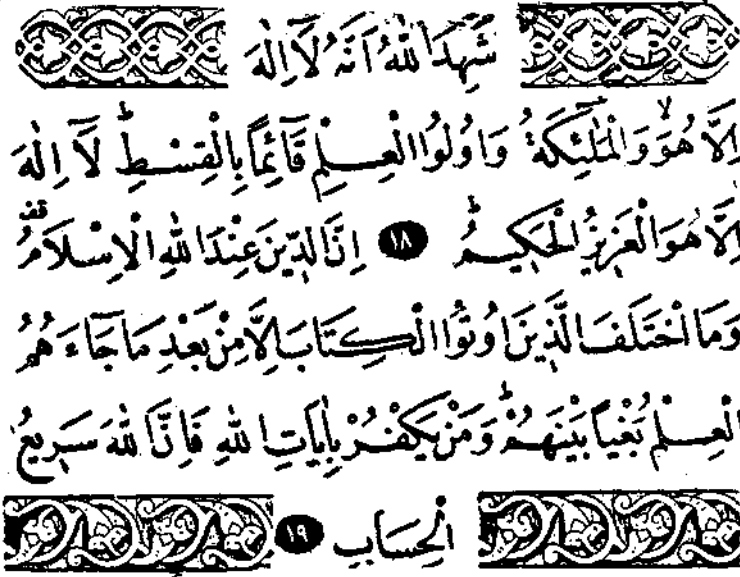 شَهِدَ اللّٰهُ اَنَّهُ لَٓا اِلٰهَ
اِلَّا هُوَۙ وَالْمَلٰٓئِكَةُ وَاُو۬لُوا الْعِلْمِ قَٓائِمًا بِالْقِسْطِۜ لَٓا اِلٰهَ
اِلَّا هُوَ الْعَزِيزُ الْحَكِيمُۜ ﴿١٨﴾ اِنَّ الدِّينَ عِنْدَ اللّٰهِ الْاِسْلَامُ۠ قف
وَمَا اخْتَلَفَ الَّذِينَ اُو۫تُوا الْكِتَابَ اِلَّا مِنْ بَعْدِ مَا جَٓاءَهُمُ
الْعِلْمُ بَغْيًا بَيْنَهُمْۜ وَمَنْ يَكْفُرْ بِاٰيَاتِ اللّٰهِ فَاِنَّ اللّٰهَ سَرِيعُ
الْحِسَابِ ﴿١٩﴾